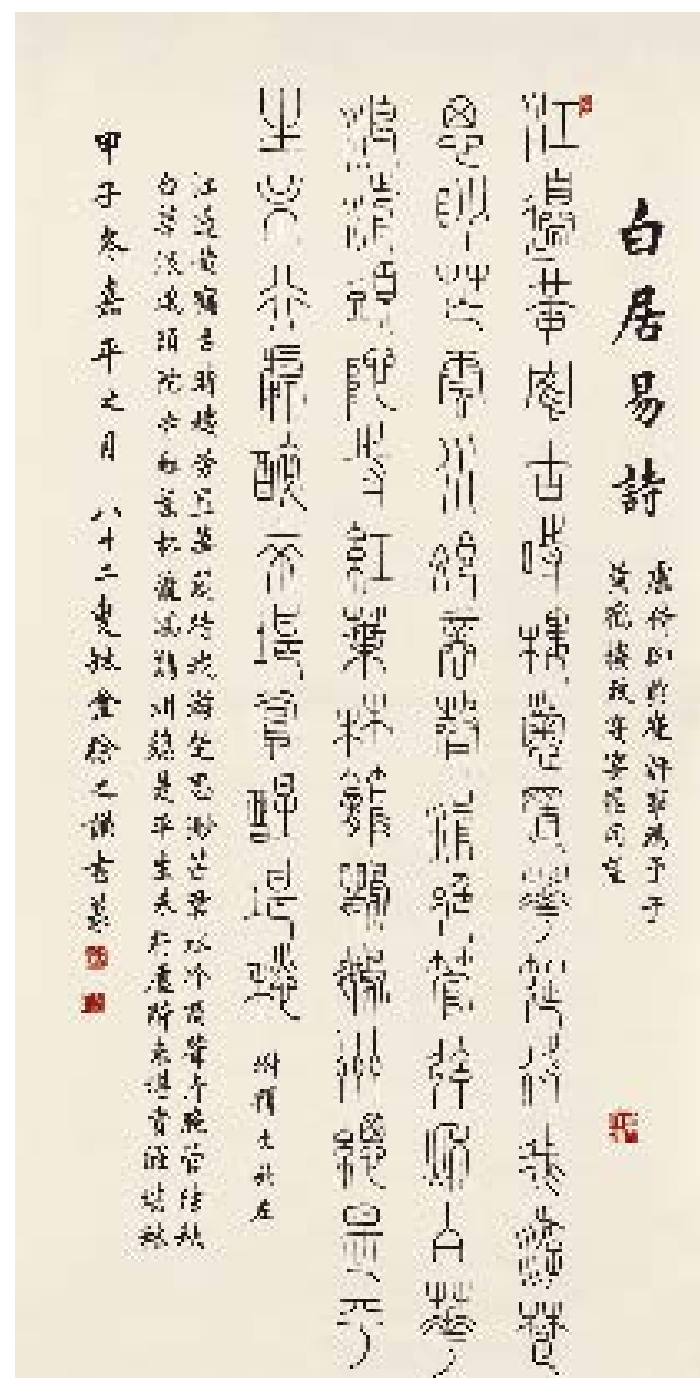 白居易詩
盧侍御於崔評事為予于
黃鶴樓致宴宴罷同望
江邊黃鶴古時樓勞置華筵待我遊楚
思眇茫雲水冷商聲清脆管絃秋白華
浪濺頭陀寺紅葉林籠鸚鵡洲總是平
生未行處醉來堪賞醒堪愁 附釋文於左
江邊黃鶴古時樓勞置華筵待我遊楚思眇茫雲水冷商聲清脆管絃秋
白花浪濺頭陀寺紅葉林籠鸚鵡洲總是平生未行處醉來堪賞醒堪愁
甲子冬嘉平之月 八十二叟徐之謙書